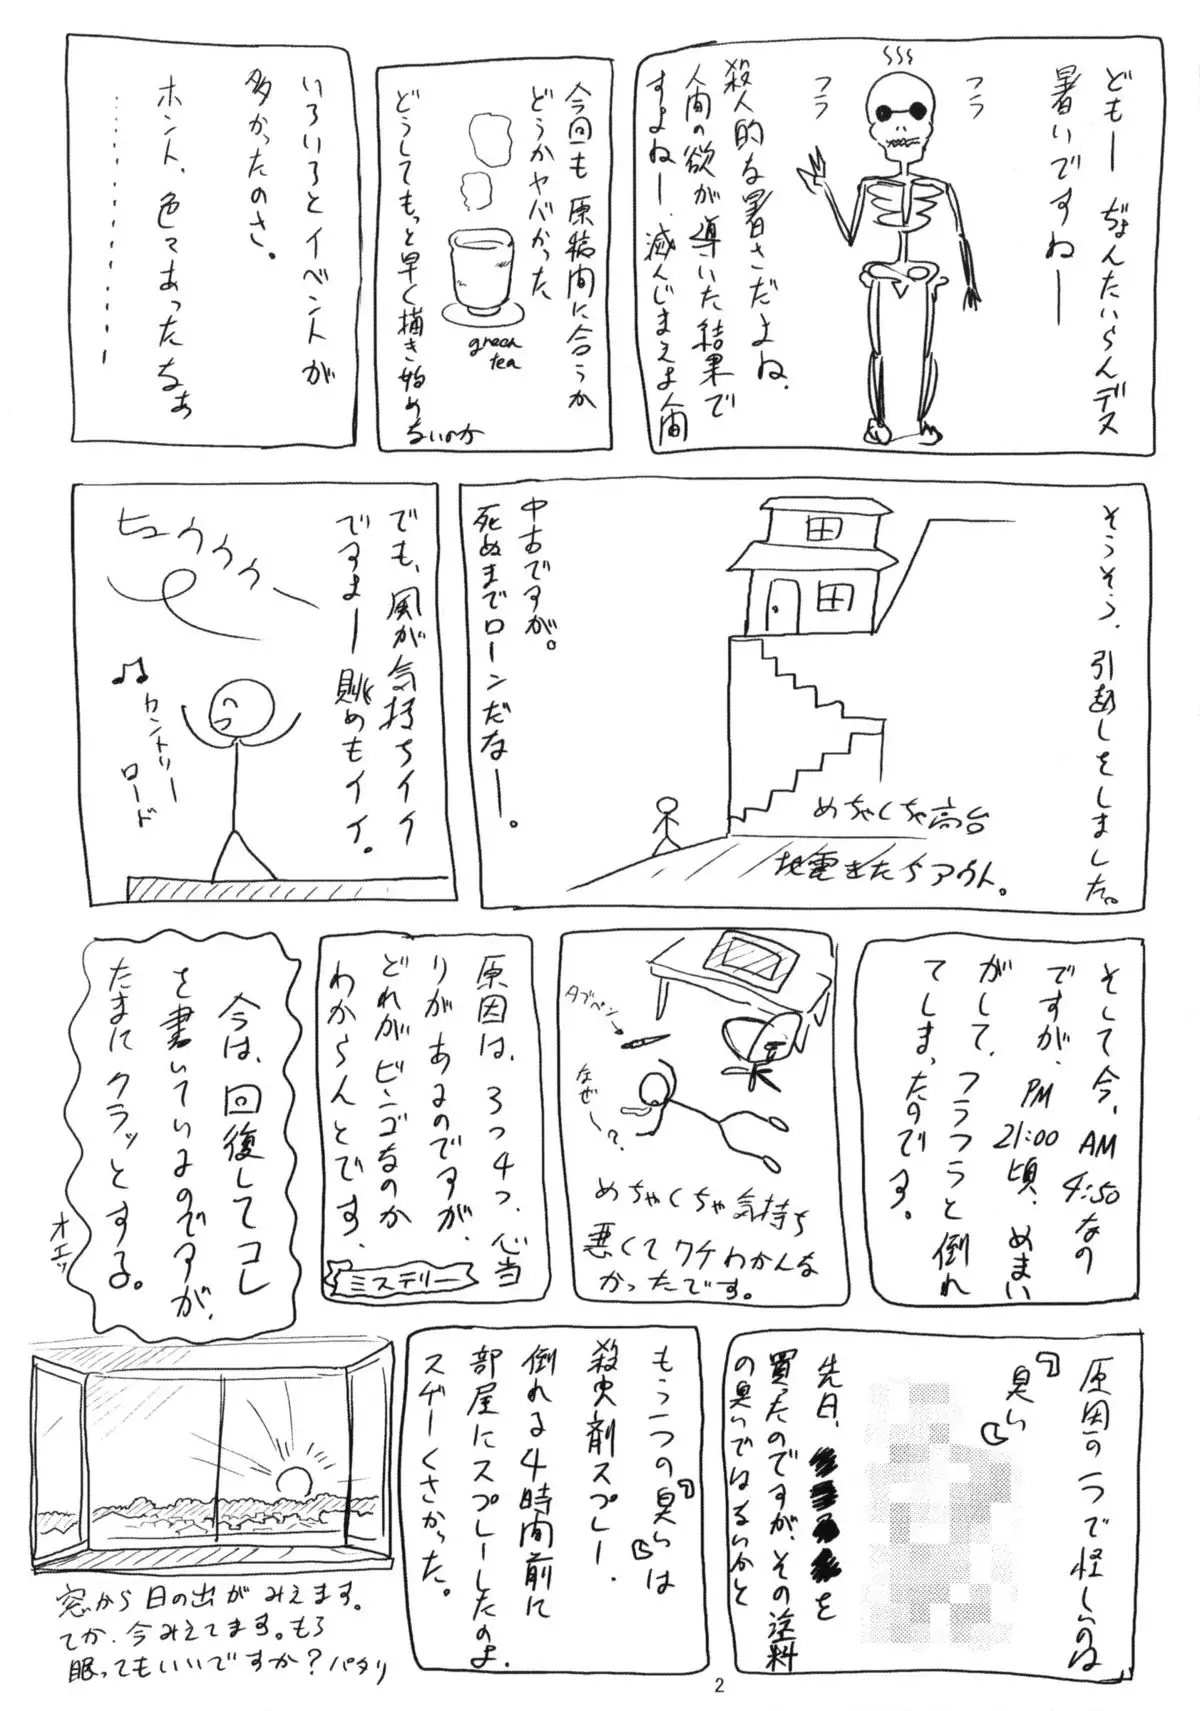 どもー ぢょんたいらんデス
暑いですねー
フラ
フラ
殺人的な暑さだよね、
人間の欲が導いた結果で
すよねー、滅んじまえよ人間
今回も原稿間に合うか
どうかヤバかった
どうしてもっと早く描き始め
ないのか
green
tea
いろいろとイベントが
多かったのさ。
ホント、色々あったなぁ
そうそう、引越しをしました。
めちゃくちゃ高台
地震きたらアウト。
中古ですが。
死ぬまでローンだなー。
でも、風が気持ちイイ
ですよー眺めもイイ。
ヒュウゥゥー
♫カントリー
ロード
そして今、AM4:50なの
ですが、PM21:00頃、めまい
がして、フラフラと倒れ
てしまったのです。
タブペン
なぜー?
めちゃくちゃ気持ち
悪くてワケわかんな
かったです。
原因は、3つ4つ、心当
りがあるのですが、
どれがビンゴなのか
わからんとです、
ミステリー
今は、回復してコレ
を書いているのですが、
たまにクラッとする。
オエッ
原因の一つで怪しいのは
「臭い」
先日、を
買ったのですが、その塗料
の臭いではないかと
もう一つの「臭い」は
殺虫剤スプレー、
倒れる4時間前に
部屋にスプレーしたのよ、
スゲーくさかった。
窓から日の出がみえます。
てか、今みえてます。もう
眠ってもいいですか?パタリ
2